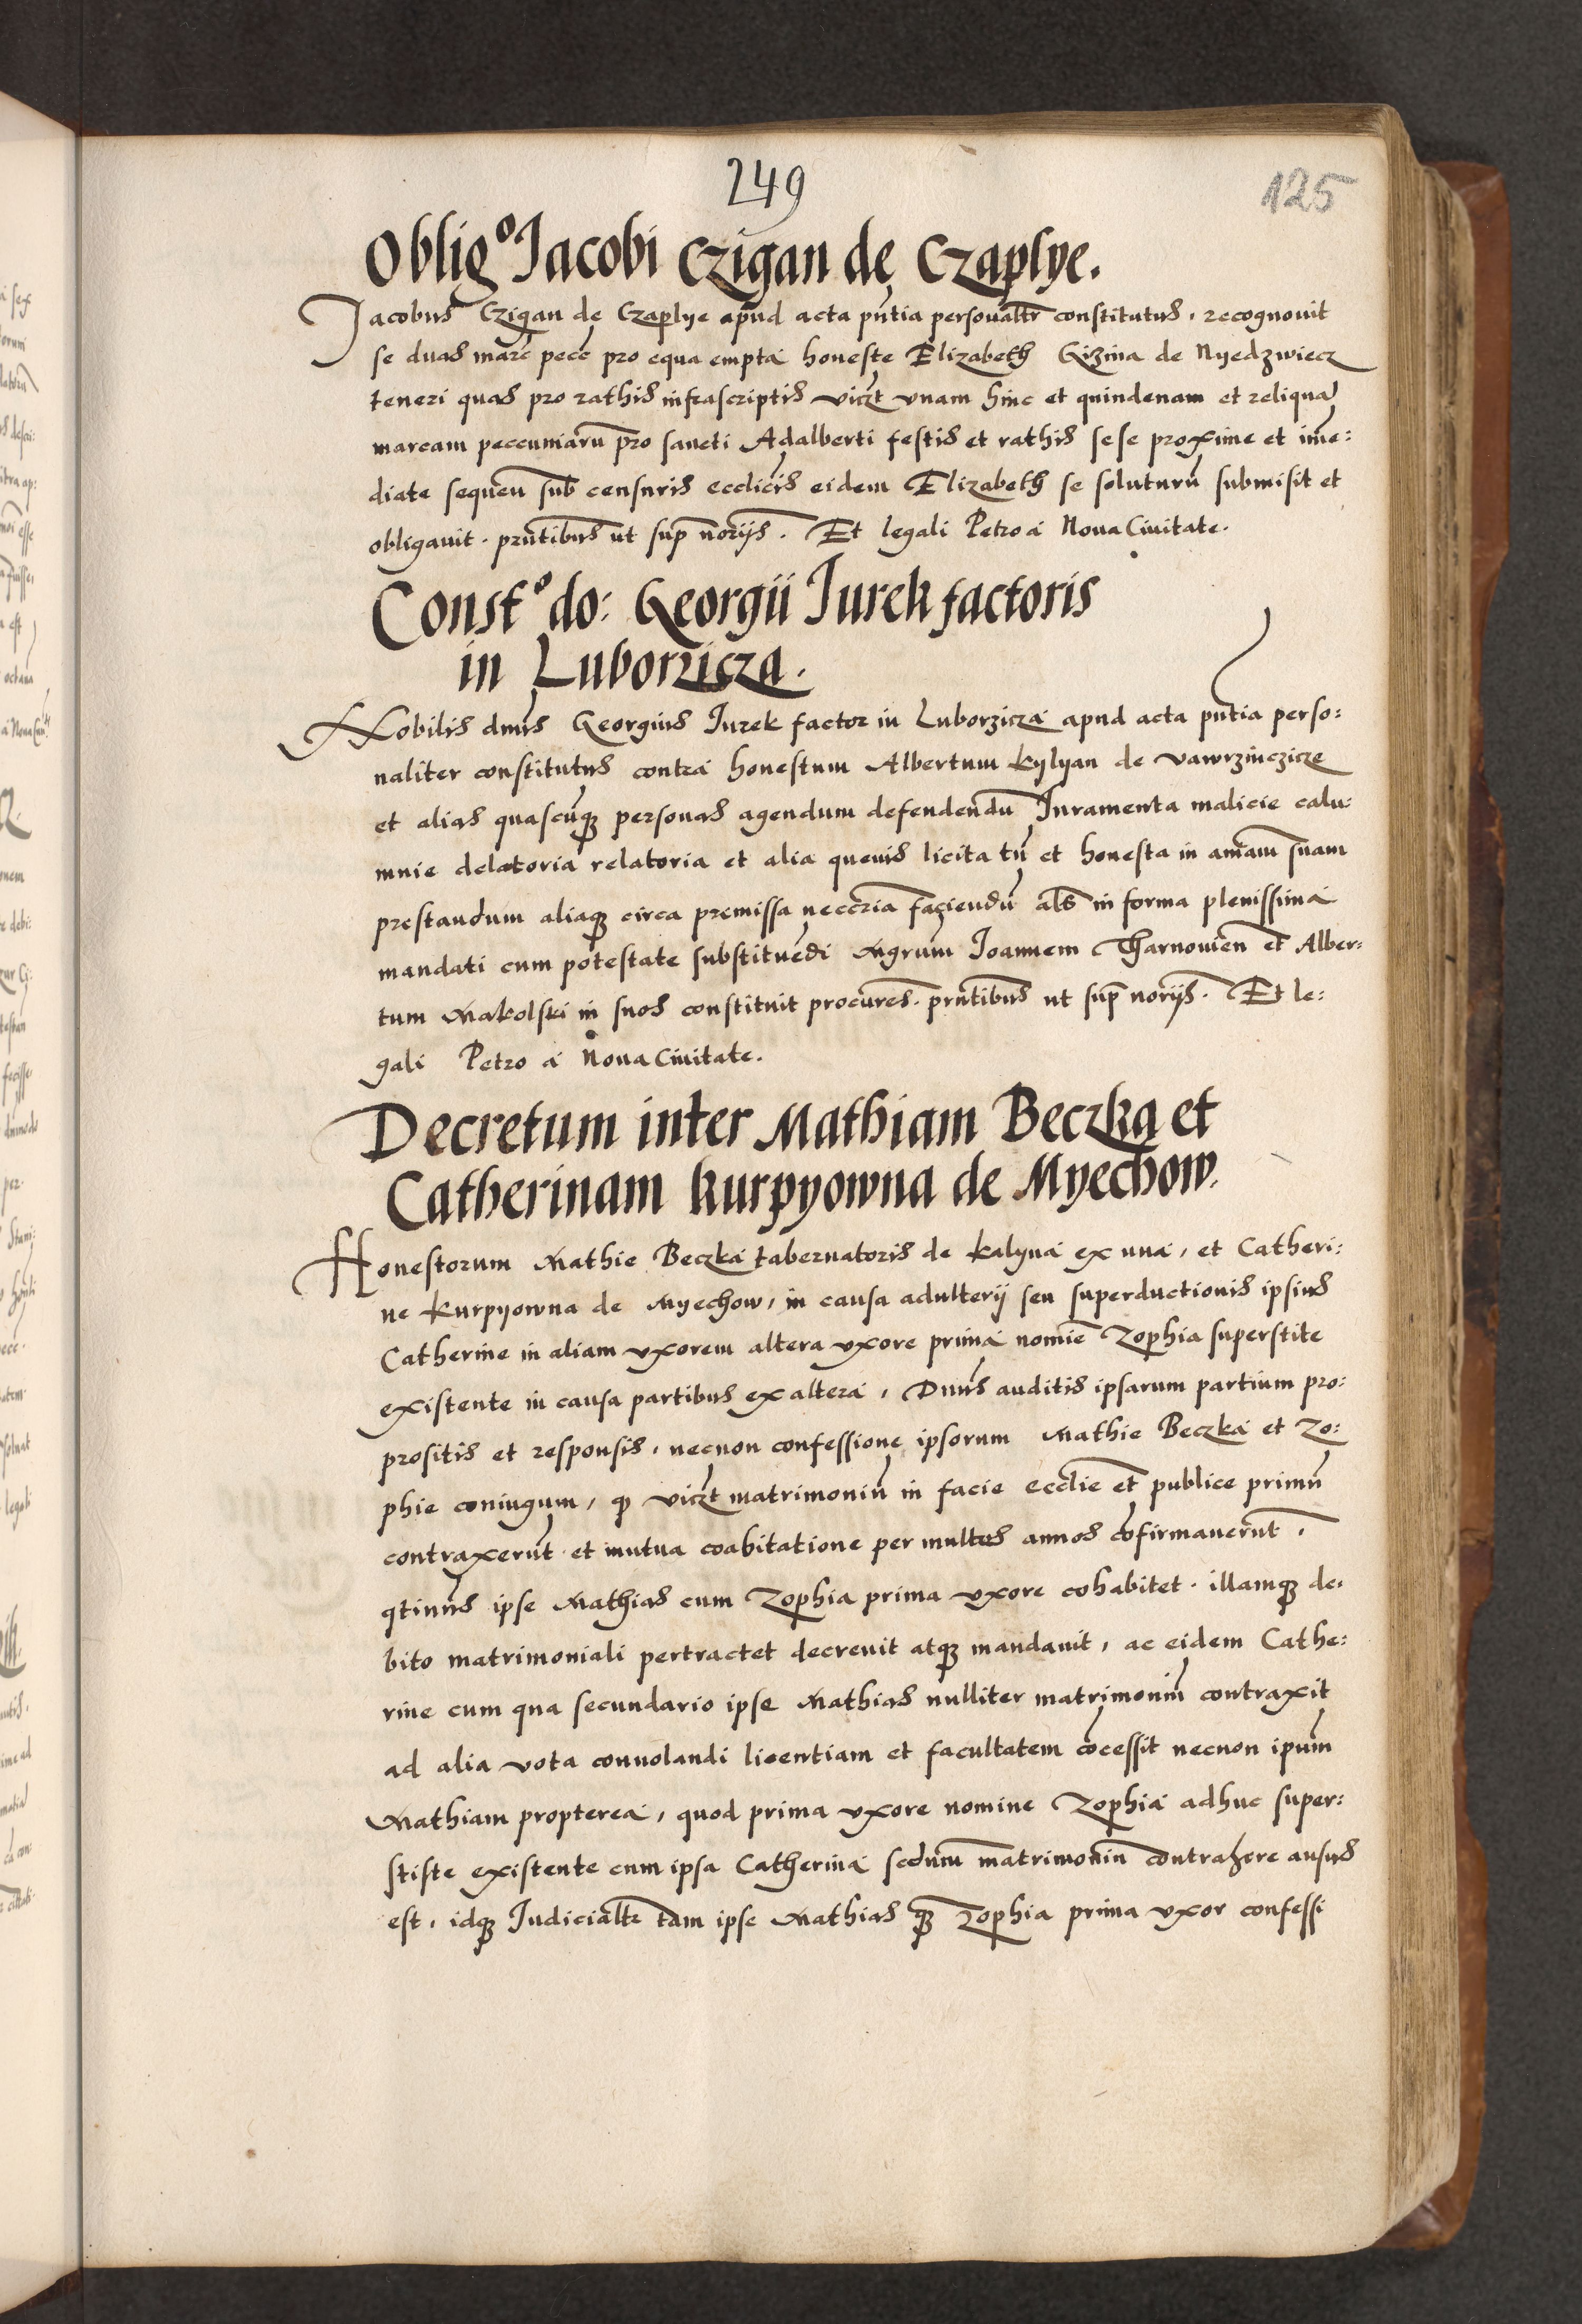 249
125
Oblig⁰ Jacobi Czigan de Czaplye.
Jacobus Czigan de Czaplye apud acta pn̄tia personaltr̄ constitutus, recognovit
se duas marc̄ pecc̄ pro equa empta honeste Elizabeth Gizina de Nyedzwiecz
teneri quas pro rathis infrascriptis viczt vnam hinc et quindenam et reliquā
marcam peccuniarū pro sancti Adalberti festis et rathis sese proxime et im̄e:
diate sequen̄ sub censuris eccl̄icis eidem Elizabeth se soluturū submisit et
obligauit. prn̄tibus ut sup̄ norijs. Et legali Petro a Noua Ciuitate.
Const⁰ do: Georgii Jurek factoris
in Luborzicza.
Nobilis dn̄us Georgius Jurek factor in Luborzicza apud acta pn̄tia perso:
naliter constitutus contra honestum Albertum Kylyan de vawrzinczicze
et alias quascūq3 personas agendum defendendū Juramenta malicie calu:
mnie delatoria relatoria et alia quevis licita tn̄ et honesta in am̄am suam
prestandum aliaq3 circa premissa neccr̄ia faciendū al̄s in forma plenissima
mandati cum potestate substituēdi Mgrum̄ Joannem Tharnouien̄ et Alber:
tum Makolski in suos constituit procures̄. prn̄tibus ut sup̄ norijs. Et le:
gali Petro a Noua Ciuitate.
Decretum inter Mathiam Beczka et
Catherinam kurpyowna de Myechow.
Honestorum Mathie Beczka tabernatoris de kalyna ex una, et Catheri:
ne Kurpyowna de Myechow, in causa adulterij seu superductionis ipsius
Catherine in aliam vxorem altera vxore prima nomīe Zophia superstite
existente in causa partibus ex altera, Dn̄us auditis ipsarum partium pro:
prositis et responsis, necnon confessione ipsorum Mathie Beczka et Zo:
phie coniugum, q̄ viczt matrimoniū in facie eccl̄ie et publice primū
contraxerūt et mutua coabitatione per multos annos cōfirmauerūt,
qtinūs ipse Mathias cum Zophia prima vxore cohabitet. illamq3 de:
bito matrimoniali pertractet decrevit atq3 mandauit, ac eidem Cathe:
rine cum qua secundario ipse Mathias nulliter matrimoniū contraxit
ad alia vota conuolandi licentiam et facultatem cōcessit necnon ipum̄
Mathiam propterea, quod prima vxore nomine Zophia adhuc super:
stiste existente cum ipsa Catherina sedum̄ matrimoniū contrahere ausus
est, idq3 Judicialtr̄ tam ipse Mathias q3 Zophia prima vxor confessi